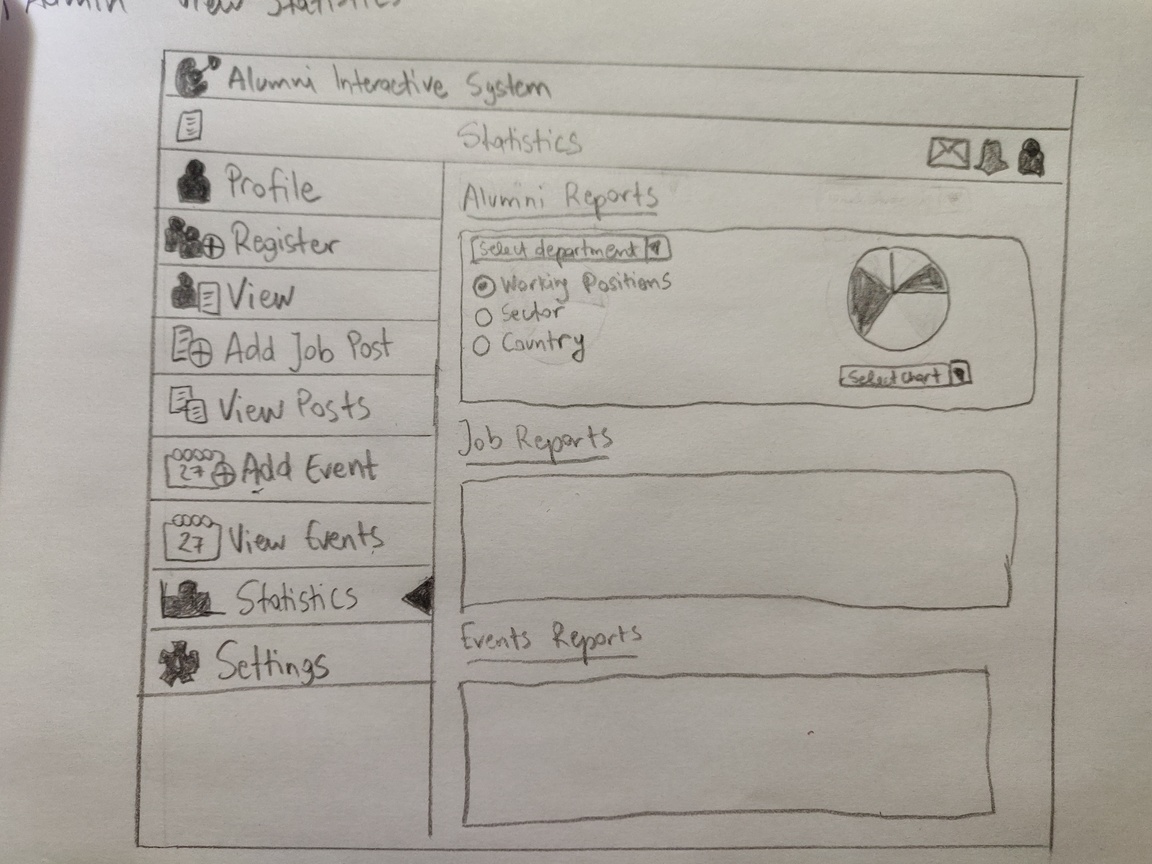 Admin View Statistics
Alumni Interactive System
Statistics
Profile
Register
View
Add Job Post
View Posts
27 Add Event
27 View Events
Statistics
Settings
Alumni Reports
Select department
Working Positions
Sector
Country
Select chart
Job Reports
Events Reports